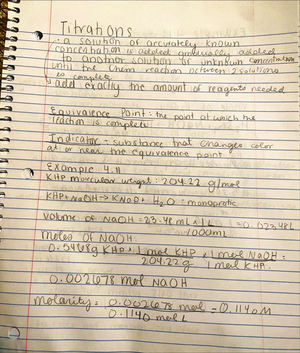 Titrations
• a solution of accurately known
concentration is added gradually added
to another solution of unknown concentration
until the chem reaction between 2 solutions
is complete
• add exactly the amount of reagents needed
Equivalence Point: the point at which the
reaction is complete
Indicator - substance that changes color
at or near the equivalence point
Example 4.11
KHP molecular weight: 204.22 g/mol
KHP + NaOH → KNaP + H2O : monoprotic
Volume of NaOH = 23.48 mL × 1L = 0.02348L
1000mL
Moles of NaOH:
0.5468g KHP × 1 mol KHP × 1 mol NaOH =
204.22g 1 mol KHP
0.002678 mol NaOH
Molarity = 0.002678 mol = 0.1140M
0.1140 mol L